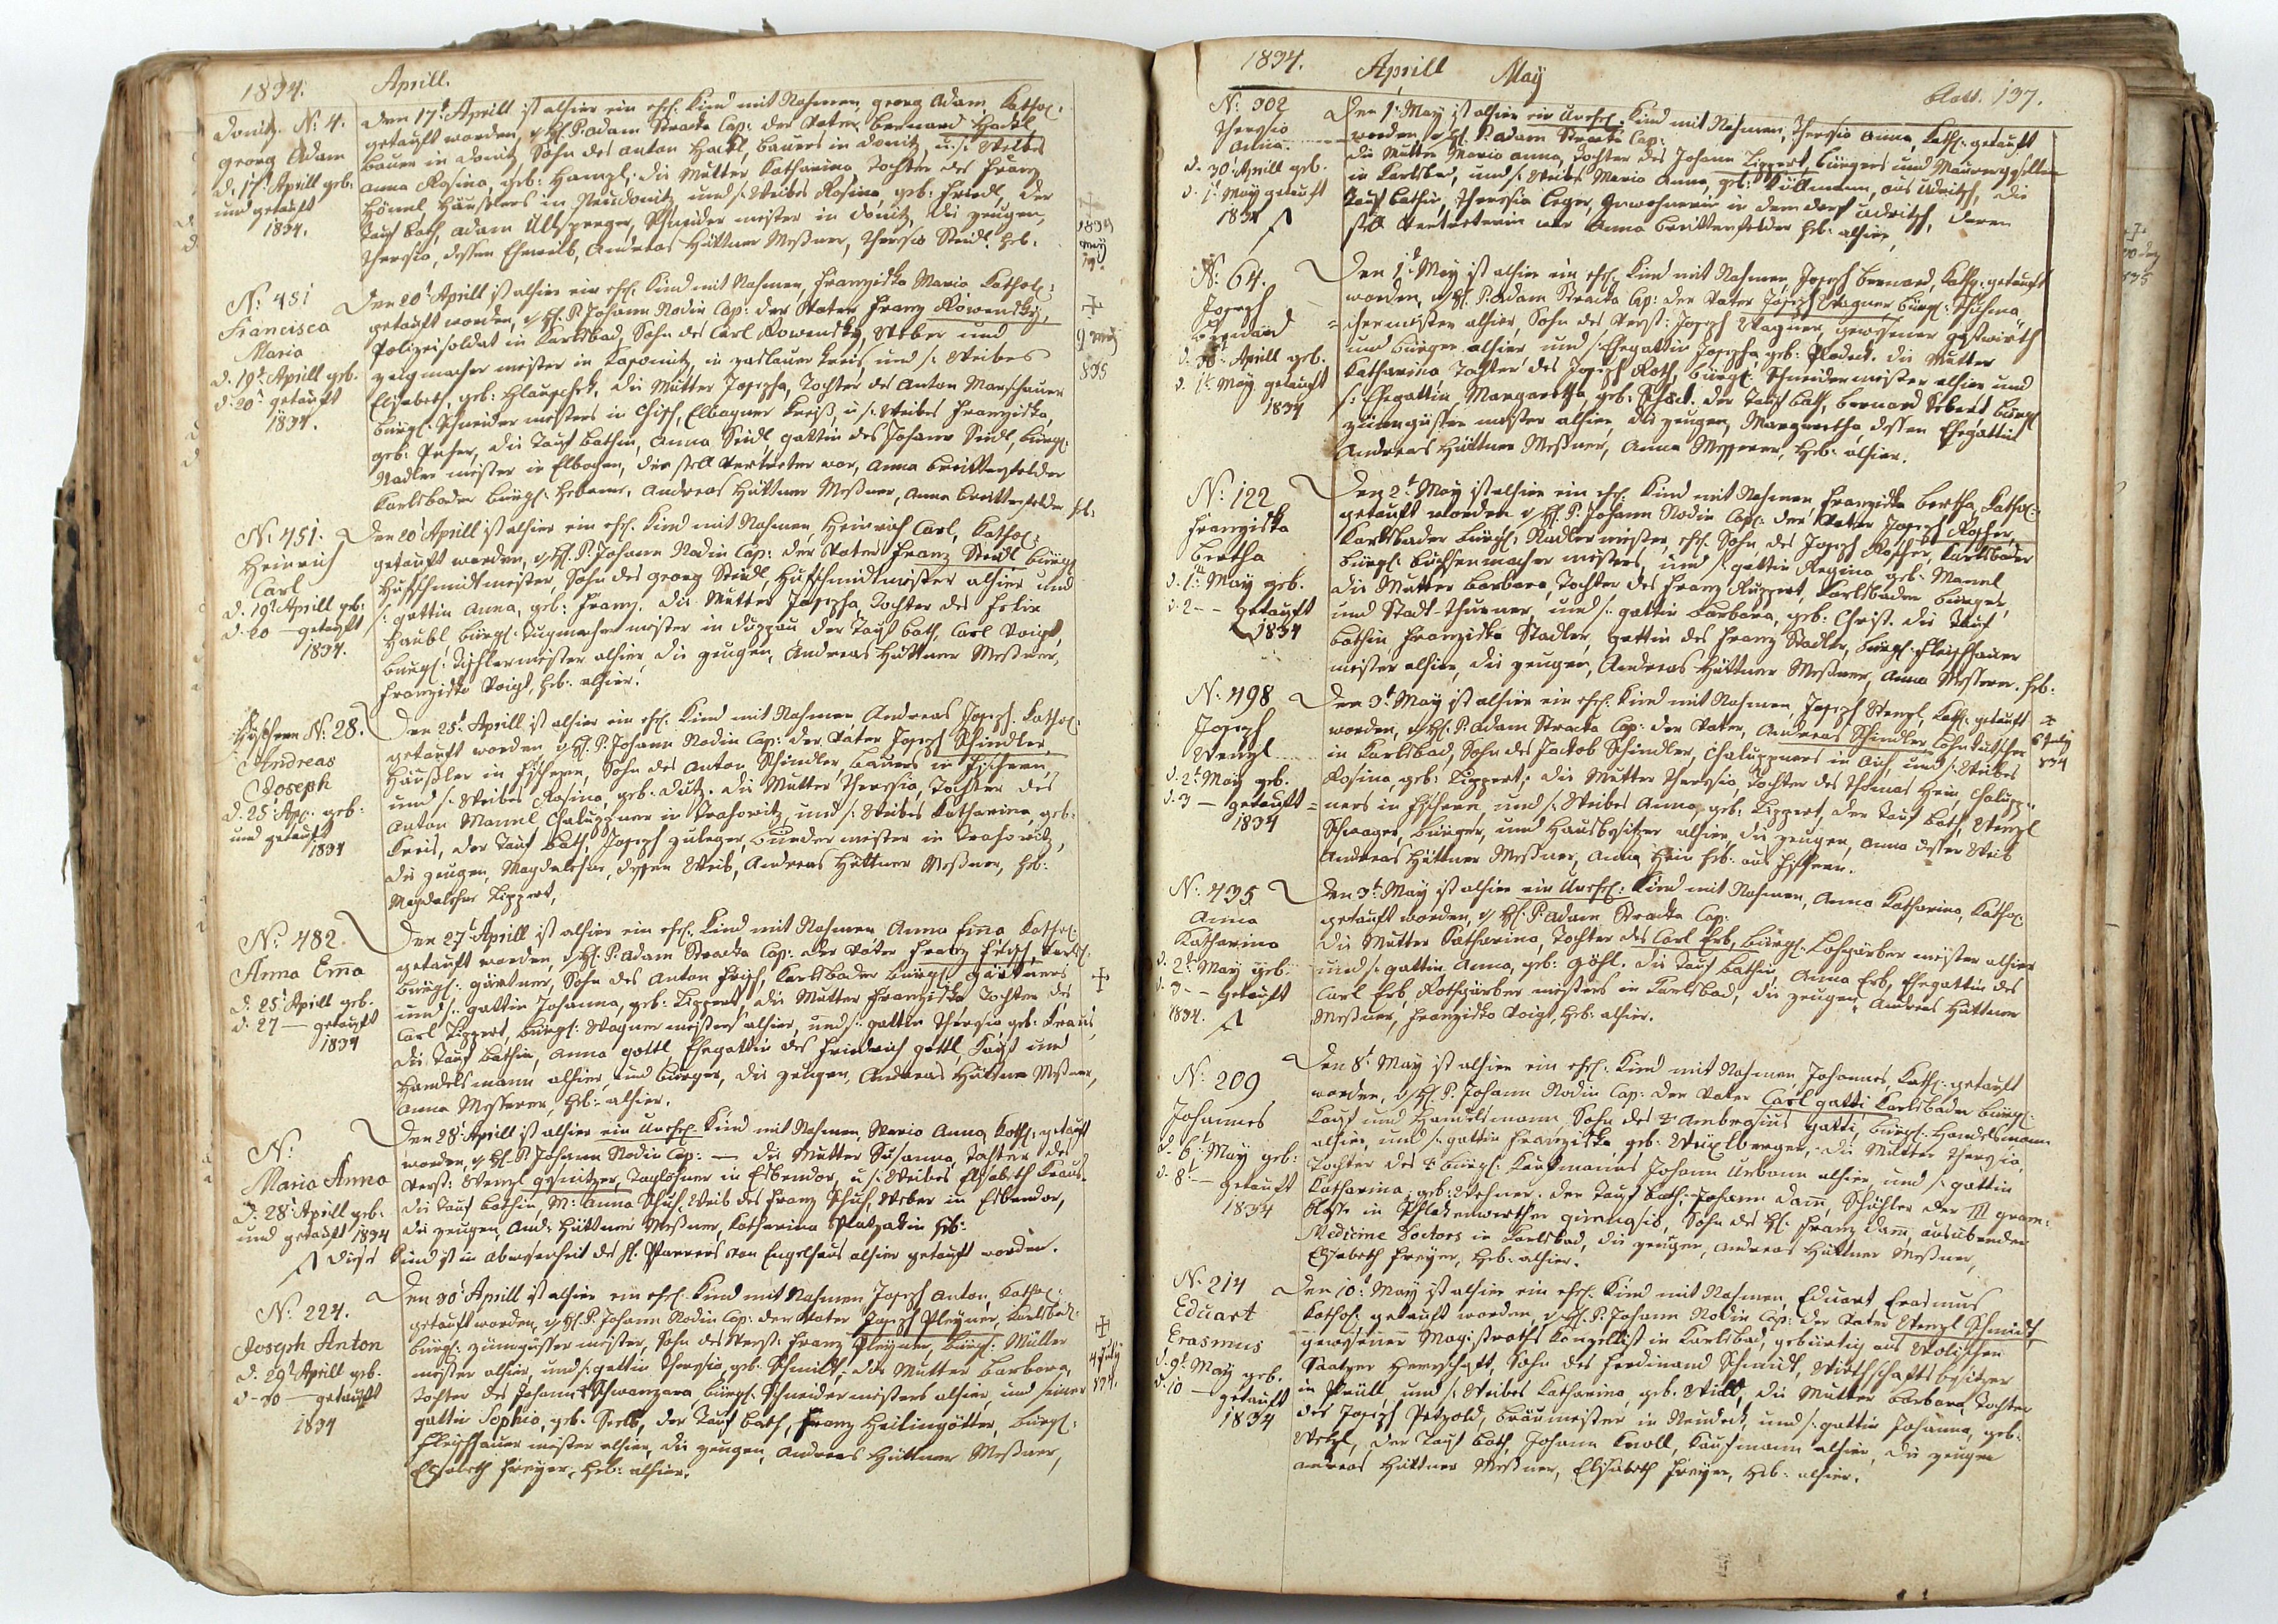 1834. Aprill.
Donitz. N: 4.
Georg Adam
d. 17t Aprill geb:
und getauft
1834.
Den 17t Aprill ist alhier ein ehel. Kind mit Nahmen, Georg Adam, Kathol:
getauft worden, v H. P. Adam Stracka Cap: der Vater Bernard Hackl,
Bauer in Donitz, Sohn des Anton Hackl, Bauers in Donitz, u: s: Weibes
Anna Rosina, geb: Hampl; die Mutter Katharina Tochter des Franz
Häußlers in Neudonitz, und s: Weibes Rosina, geb: Friedl, der
Tauf Path, Adam Schneider meister in Donitz, die zeugen,
Theresia, dessen Eheweib, Andreas Hüttner Meßner, Theresia Neidl. heb:
1834
may
N: 451
Francisca
Maria
d. 19t Aprill geb.
d. 20t getauft
1834.
Den 20t Aprill ist alhier ein ehel. Kind mit Nahmen, Franziska Maria Kathol:
getauft worden, v H. P. Johann Nodin Cap: der Vater Franz Kowendsky,
Polizeisoldat in Karlsbad, Sohn des Carl Kowendsky, Weber und
zeugmacher meister in in zaslauer Kreis, und s: Weibes
Elisabeth, geb: die Mutter Josepha, Tochter des Anton Marschauer
bürgl. Schneider meisters in Chiesch, Elbogner Kreiß, u s: Weibes Franziska,
geb: die Tauf Bathin, Anna Seidl, gattin des Johann Seidl, bürgl:
Nadler meister in Elbogen, die stell Vertreter war, Anna Breittenfelder
Karlsbader bürgl. hebame, Andreas Hüttner Meßner, Anna Breittenfelder heb:
9 May
835
N: 451.
Heinrich
Carl
d. 19t Aprill geb:
d. 20 — getauft
1834.
Den 20t Aprill ist alhier ein ehel. Kind mit Nahmen, Heinrich Carl, Kathol:
getauft worden, v H. P. Johann Nodin Cap: der Vater Franz Neidl, bürgl:
Hufschmidtmeister, Sohn des Georg Neidl Hufschmidtmeister alhier und
s: gattin Anna, geb: Franz. die Mutter Josepha, Tochter des Felix
Haubl, bürgl. Tugmacher meister in Duppau der Tauf bath, Carl Voigt,
bürgl: Tischlermeister alhier, die zeugen, Andreas Hüttner Meßner,
Franziska Voigt, heb: alhier.
Fischern N: 28.
Andreas
Joseph
d. 25t Apr. geb:
und getauft
1834
Den 25t Aprill ist alhier ein ehel. Kind mit Nahmen Andreas Joseph. Kathol:
getauft worden v H. P. Johann Nodin Cap: der Vater Joseph Schindler
Häußler in Fischern, Sohn des Anton Schindler, Bauers in Fischern,
und s: Weibes Rosina, geb: Lutz. die Mutter Theresia, Tochter des
Anton Mannl Chaluppner in Drahowitz, und s: Weibes Katharina, geb:
Kreis, der Tauf Bath, Joseph Zuleger, Binder meister in Drahowitz,
die zeugen, Magdalehna, dessen Weib, Andreas Hüttner Meßner, heb:
Magdalehna Lippert,
N: 482.
Anna Em̄a
d: 25t Aprill geb.
d: 27 — getauft
1834
Den 27t Aprill ist alhier ein ehel. Kind mit Nahmen Anna Em̄a Kathol:
getauft worden, v H. P. Adam Stracka Cap: der Vater Franz Frisch, Karls:
bürgl: gärtner, Sohn des Anton Frisch, Karlsbader bürgl: gärtners
und s: gattin Johanna, geb: Lippert, die Mutter Franziska Tochter des
Carl Lippert, bürgl: Wagner meisters alhier, und s: gattin Theresia geb: Kraus,
die Tauf bathin, Anna gottl, Ehegattin des Friedrich gottl, Kauf und
Handelsmann alhier, und bürger, die zeugen, Andreas Hüttner Meßner,
Anna Messerer, heb: alhier.
N:
Maria Anna
d: 28t Aprill geb.
und getauft 1834
Den 28t Aprill ist alhier ein Unehel. Kind mit Nahmen, Maria Anna, Kathl: getauft
worden, v H. P. Johann Nodin Cap: — die Mutter Susanna, Tochter des
Verst: Wenzl Taglöhner in Espendor, u s: Weibes Elisabeth Kraus.
die Tauf bathin, M: Anna Schuh, Weib des Franz Schuh, Weber in Espendor,
die zeugen, And: Hüttner Meßner, Katharina heb:
dieses Kind ist in abwesenheit des H. Pfarrers von Engelhaus alhier getauft worden.
N: 224.
Joseph Anton
d: 29t Aprill geb.
d - 30 — getauft
1834
Den 30t Aprill ist alhier ein ehel. Kind mit Nahmen Joseph Anton, Kathol:
getauft worden, v H. P. Johann Nodin Cap: der Vater Joseph Pleyner, Karlsbad:
bürgl: zinngüsser meister, Sohn des Verst: Franz Pleyner, bürgl: Müller
meister alhier, und s: gattin Theresia, geb: Schmidt, die Mutter Barbara,
Tochter des Johann Schwanzara, bürgl: Schneider meisters alhier, und seiner
gattin Sophia, geb: Seelb, der Tauf bath, Franz Heilingötter, bürgl:
Fleischhauer meister alhier, die zeugen, Andreas Hüttner Meßner,
Elisabeth Freyer, heb: alhier.
4 July
834.
1834. Aprill May
blatt. 137.
N: 302
Theresia
Anna
d. 30t Aprill geb.
d. 1t May getauft
1834
Den 1t May ist alhier ein Unehel. Kind mit Nahmen, Theresia Anna, Kathl: getauft
worden v H. P. Adam Stracka Cap:
die Mutter Maria Anna, Tochter des Johann Lippert, bürgers und Maurergesellen
in Karlsbad, und s: Weibes Maria Anna, geb: aus Udritsch, die
Tauf bathin, Theresia Leger, Inwohnerin in dem dorf Udritsch, deren
stell Vertreterin war Anna Breittenfelder heb: alhier,
N: 64.
Joseph
Bernard
d. 30t Aprill geb.
d. 1t May getauft
1834
Den 1t May ist alhier ein ehel. Kind mit Nahmen, Joseph Bernard, Kathl: getauft
worden, v H. P. Adam Stracka Cap: der Vater Joseph Wagner, bürgl: Schuhma
=chermeister alhier, Sohn des Verst: Joseph Wagner, gewesener gastwirth
und bürger alhier, und s: Ehegattin Josepha, geb: die Mutter
Katharina Tochter des Joseph Roth, bürgl: Schneidermeister alhier und
s: Ehegattin Margaretha, geb: der Tauf bath, Bernard Sebert bürgl
zinngüsser meister alhier, die zeugen, Margaretha, dessen Ehegattin
Andreas Hüttner Meßner, Anna Messerer, heb: alhier.
N: 122
Franziska
Bertha
d. 1t May geb.
d. 2 - - getauft
1834
Den 2t May ist alhier ein ehel. Kind mit Nahmen, Franziska Bertha, Kathol:
getauft worden v H. P. Johann Nodin Cap: der Vater, Joseph Rosher,
Karlsbader bürgl: Nadler meister, ehel. Sohn, des Joseph Rosher, Karlsbader
bürgl: büchsenmacher meisters, und s: gattin Regina geb: Mannl
die Mutter Barbara, Tochter des Franz Ruppert, Karlsbader bürger
und Stadt-thürner, und s: gattin Barbara, geb: Christ. die Tauf
bathin Franziska Stadler, gattin des Franz Stadler, bürgl: Fleischhauer
meister alhier, die zeugen, Andreas Hüttner Meßner, Anna Messerer. heb:
N: 498
Joseph
Wenzl
d. 2t May geb.
d. 3 — getauft
1834
Den 3t May ist alhier ein ehel. Kind mit Nahmen, Joseph Wenzl, Kathl: getauft
worden, v H. P. Adam Stracka Cap: der Vater, Andreas Schindler, Lohnkutscher
in Karlsbad, Sohn des Jackob Schindler, Chaluppners in Aich, und s: Weibes
Rosina, geb: Lippert; die Mutter Theresia, Tochter des Thomas Hein, Chalupp=
=ners in Fischern, und s: Weibes Anna, geb: Lippert, der Tauf bath, Wenzl
Schwager, bürger, und Hausbesitzer alhier, die zeugen, Anna dessen Weib
Andreas Hüttner Meßner, Anna Hein heb: aus Fischern.
6 July
834
N: 435
Anna
Katharina
d. 2t May geb.
d. 3 - - getauft
1834.
Den 3t May ist alhier ein Unehel: Kind mit Nahmen, Anna Katharina, Kathol:
getauft worden, v H. P. Adam Stracka Cap:
Die Mutter Katharina, Tochter des Carl Erb, bürgl. Lohgärber meister alhier
und s: gattin Anna, geb: Göhl. die Tauf bathin, Anna Erb, Ehegattin des
Carl Erb, Rothgärber meisters in Karlsbad, die zeugen, Andreas Hüttner
Meßner, Franziska Voigt, heb: alhier.
N: 209
Johannes
d. 6t May geb:
d. 8t — getauft
1834
Den 8t May ist alhier ein ehel: Kind mit Nahmen, Johannes, Kathl: getauft
worden, v H. P. Johann Nodin Cap: der Vater Carl gatti Karlsbader bürgl:
Kauf und Handelsmann, Sohn des + Ambrosius gatti, bürgl: Handelsmann
alhier, und s: gattin Franziska, geb: die Mutter Theresia,
Tochter des + bürgl: Kaufmanns Johann Urbann alhier, und s: gattin
Katharina, geb: der Tauf bath, Johann Dam̄, Schühler der III gram:
Klasse in gimnasio, Sohn des H: Franz Dam̄, ausübender
Medicine Doctors in Karlsbad, die zeugen, Andreas Hüttner Meßner,
Elisabeth Freyer, heb: alhier.
N: 214
Eduart
Erasmus
d. 9t May geb.
d. 10 — getauft
1834
Den 10t May ist alhier ein ehel: Kind mit Nahmen, Eduart Erasmus
Kathol: getauft worden, v H. P. Johann Nodin Cap: der Vater Wenzl Schmidt,
gewesener Magistrats Kanzellist in Karlsbad, gebürtig aus
Saatzer Herrschaft, Sohn des Ferdinand Schmidt, Wirthschaftsbesitzer
in Prüll, und s: Weibes Katharina, geb: die Mutter Barbara, Tochter
des Joseph Petzold, bräumeister in Neudeck, und s: gattin Johanna, geb:
der Tauf bath, Johann Knoll, Kaufmann alhier, die zeugen
Andreas Hüttner Meßner, Elisabeth Freyer, heb: alhier.